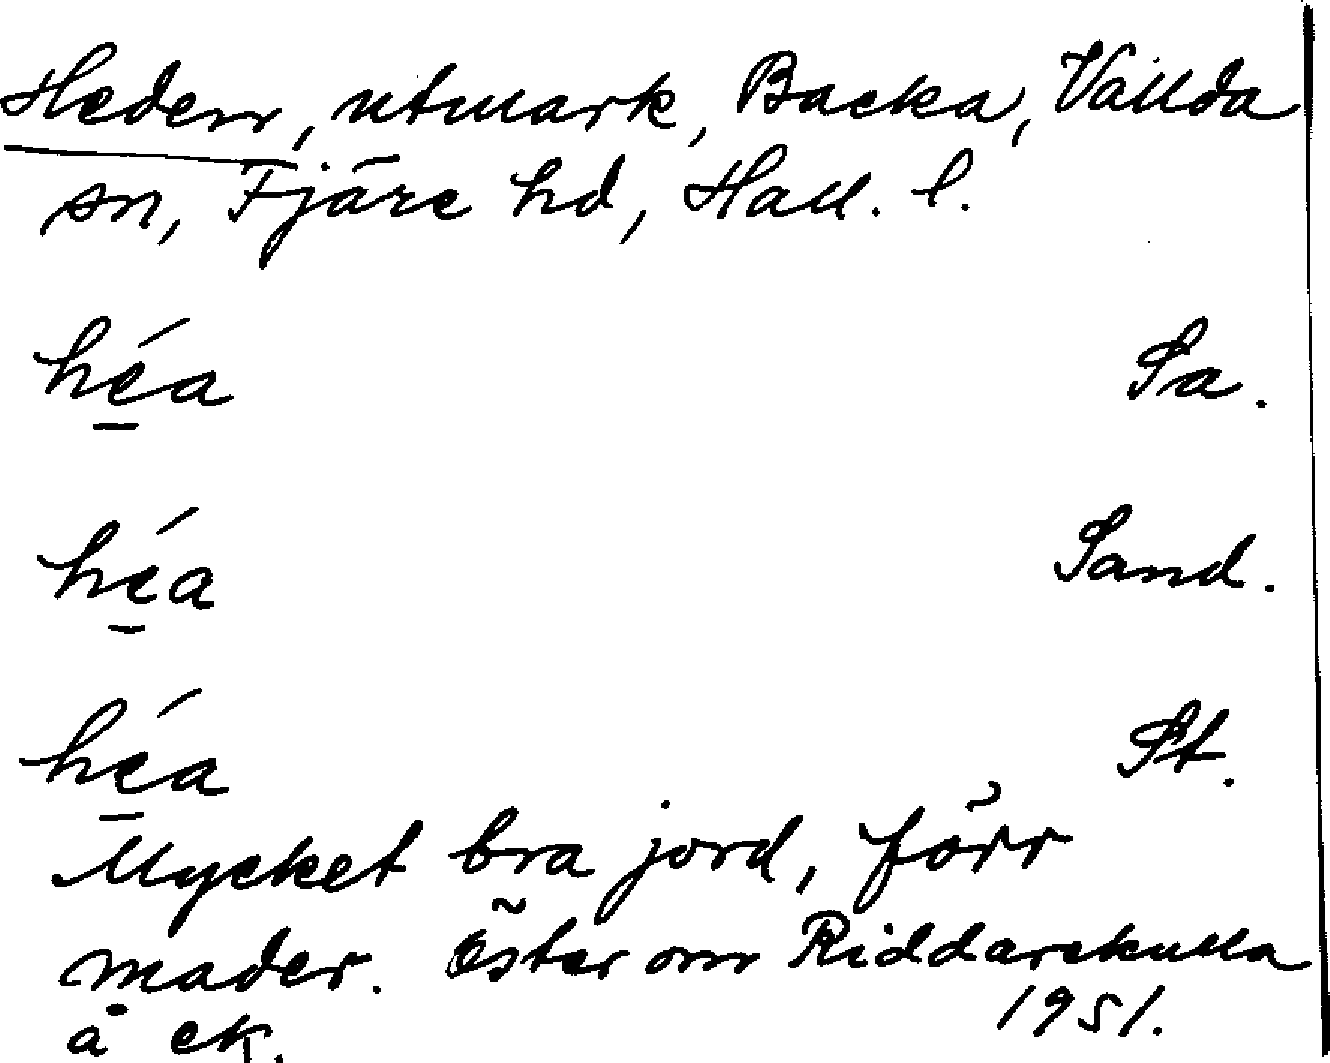 Heden, utmark, Backa, Vallda
sn, Fjäre hd, Hall. l.
héa Sa.
héa Sand.
héa St.
Mycket bra jord, förr
mader. Öster om Riddarekulla
å ek. 1951.